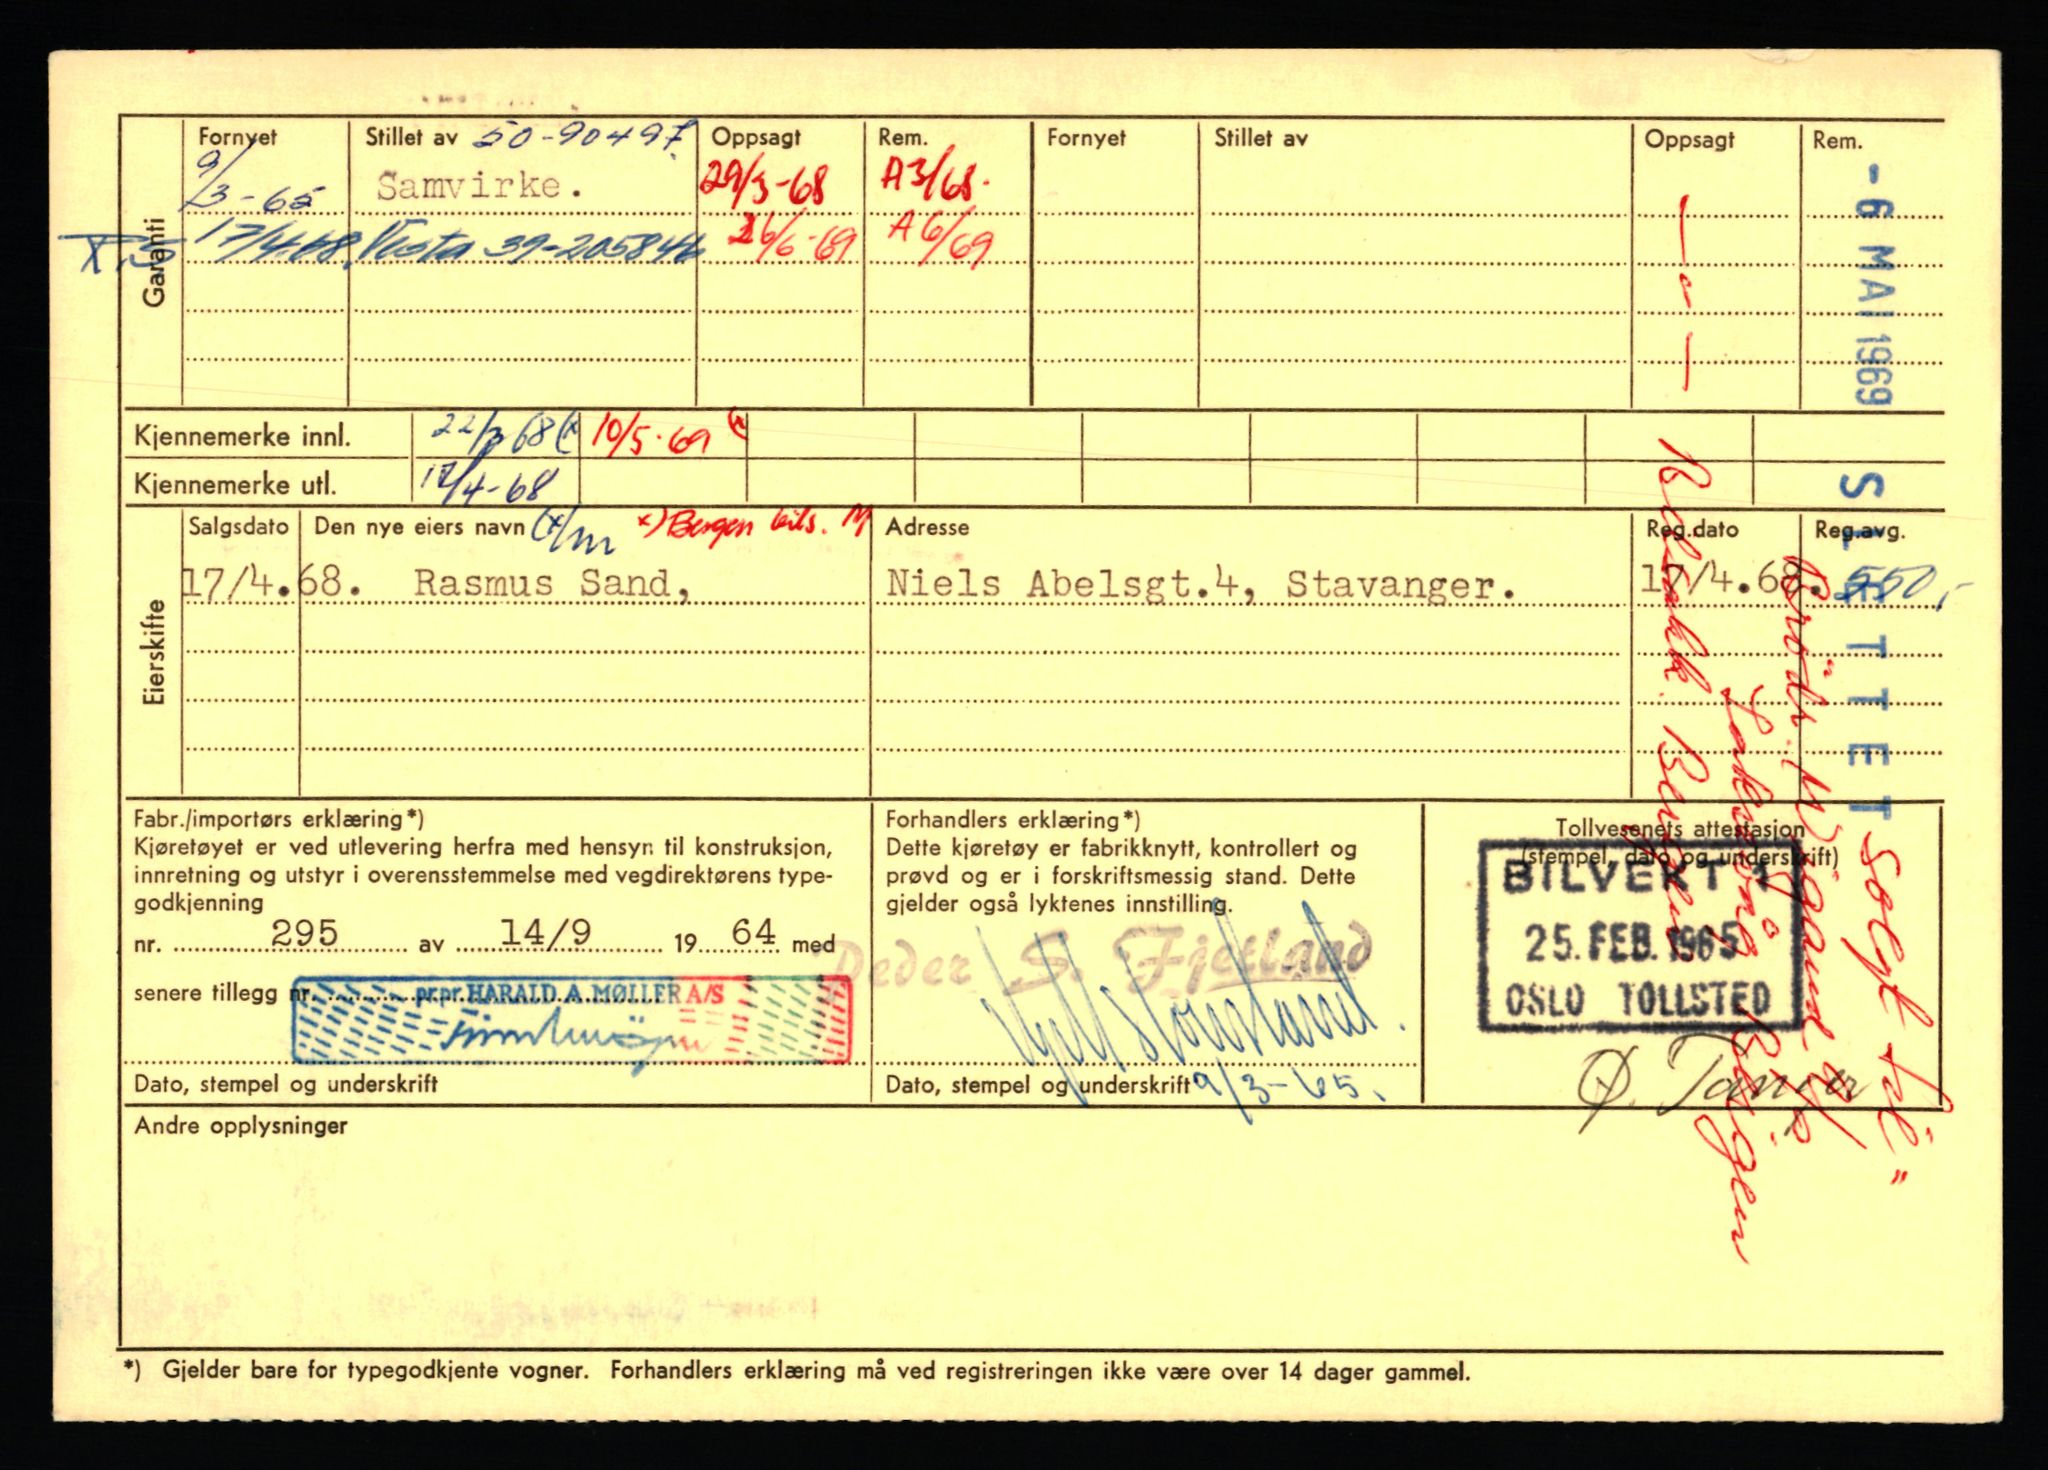 Fornyet Stillet av 50-90497. Oppsagt Rem. Fornyet Stillet av Oppsagt Rem.
9/3-65 Samvirke. 29/3-68 A3/68.
17/4-68. Vesta 39-205846 26/6-69 A6/69
Garanti
- 6 MAI 1969
Kjennemerke innl. 22/3 68 (x 10/5-69 x
Kjennemerke utl. 17/4-68
SLETTET
Salgsdato Den nye eiers navn (x/m x) Bergen bils. Adresse Reg.dato Reg.avg.
17/4.68. Rasmus Sand, Niels Abelsgt.4, Stavanger. 17/4.68. 550,-
Eierskifte
Solgt til
Wiigaand
Laksevåg Bergen
Bergen
Fabr./importørs erklæring*)
Kjøretøyet er ved utlevering herfra med hensyn til konstruksjon,
innretning og utstyr i overensstemmelse med vegdirektørens type-
godkjenning
nr. 295 av 14/9 19 64 med
senere tillegg nr.
pr.pr. HARALD A. MØLLER A/S
Dato, stempel og underskrift
Forhandlers erklæring*)
Dette kjøretøy er fabrikknytt, kontrollert og
prøvd og er i forskriftsmessig stand. Dette
gjelder også lyktenes innstilling.
Peder S. Fjetland
Dato, stempel og underskrift 9/3-65.
Tollvesenets attestasjon
(stempel, dato og underskrift)
BILVEKT 1
25. FEB. 1965
OSLO TOLLSTED
Andre opplysninger
*) Gjelder bare for typegodkjente vogner. Forhandlers erklæring må ved registreringen ikke være over 14 dager gammel.